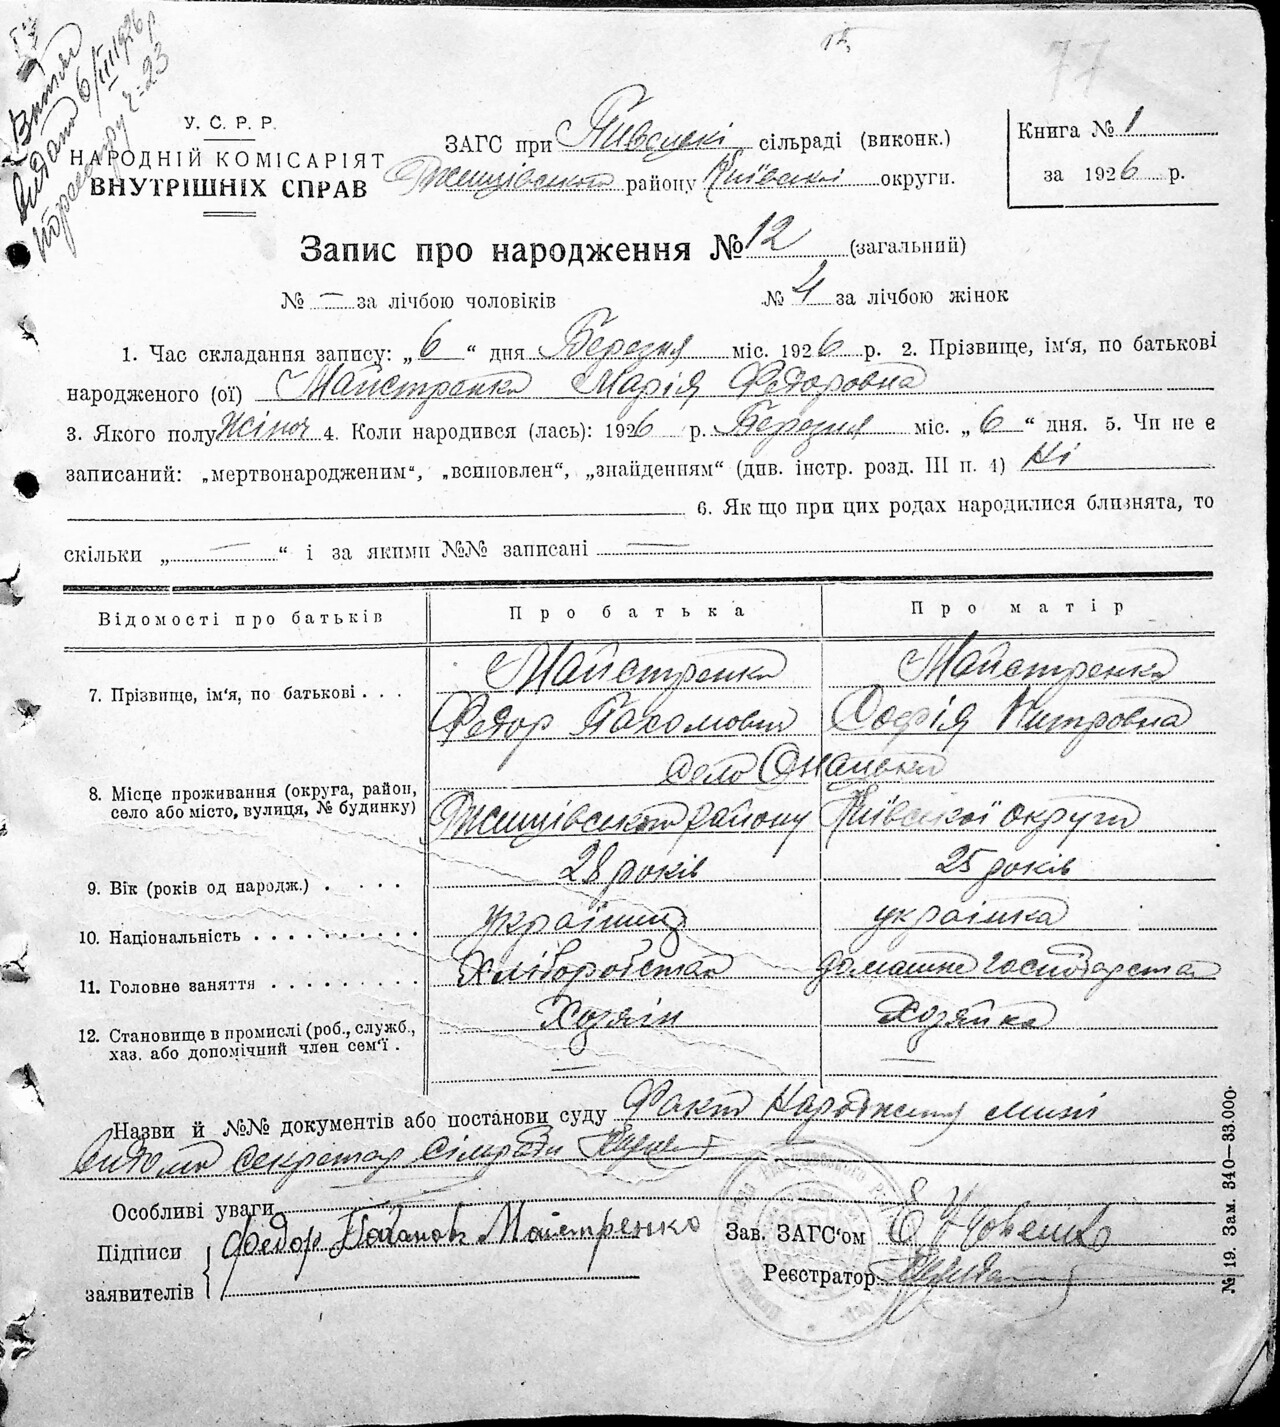 Витяг
видано 6/III 1926 р
по реєстру ч=23
12
77
У. С. Р. Р.
НАРОДНІЙ КОМІСАРІЯТ
ВНУТРІШНІХ СПРАВ
ЗАГС при сільраді (виконк.)
Ржищівського району Київської округи.
Книга № 1
за 1926 р.
Запис про народження № 12 (загальний)
№ — за лічбою чоловіків № 4 за лічбою жінок
1. Час складання запису: „ 6 “ дня Березня міс. 1926 р. 2. Прізвище, ім'я, по батькові
народженого (ої) Майстренко Марія Федоровна
3. Якого полу Жіноч 4. Коли народився (лась): 1926 р. Березня міс. „ 6 “ дня. 5. Чи не є
записаний: „мертвонародженим“, „всиновлен“, „знайденням“ (див. інстр. розд. III п. 4) Ні
6. Як що при цих родах народилися близнята, то
скільки „ — “ і за якими №№ записані —
Відомості про батьків Про батька Про матір
7. Прізвище, ім'я, по батькові . . . Майстренко Майстренко
Федор Пахомович Софія Питровна
село
8. Місце проживання (округа, район, село або місто, вулиця, № будинку) Ржищівського району Київської округи
9. Вік (років од народж.) . . . . 28 років 25 років
10. Національність . . . . . . . . . . україниц українка
11. Головне заняття . . . . . . . . . Хліборобство домашне господарство
12. Становище в промислі (роб., служб., хаз. або допомічний член сем'ї . Хозяін Хозяйка
— —
Назви й №№ документів або постанови суду Факт народження мині
видомо секретар сільради
Особливі уваги
Підписи заявителів Федор Майстренко
Зав. ЗАГС'ом
Реєстратор
№ 19. Зам. 340—33.000.